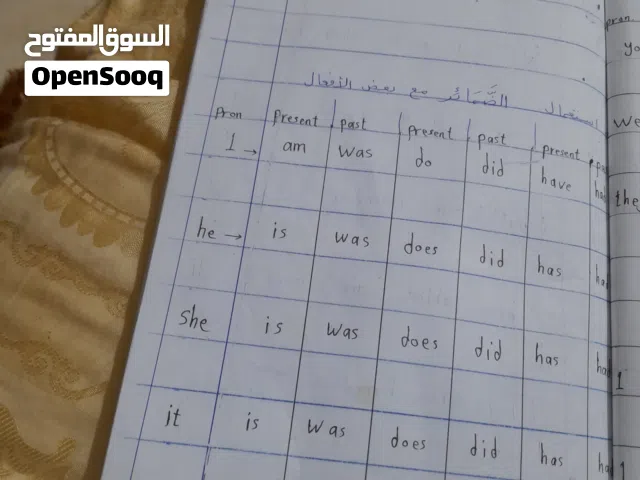 السوق المفتوح
OpenSooq
استعمال الضَّمَائر مع بعض الأفعال
Pron present past present past present
1 → am was do did have
he → is was does did has
she is was does did has
it is was does did has
we
1